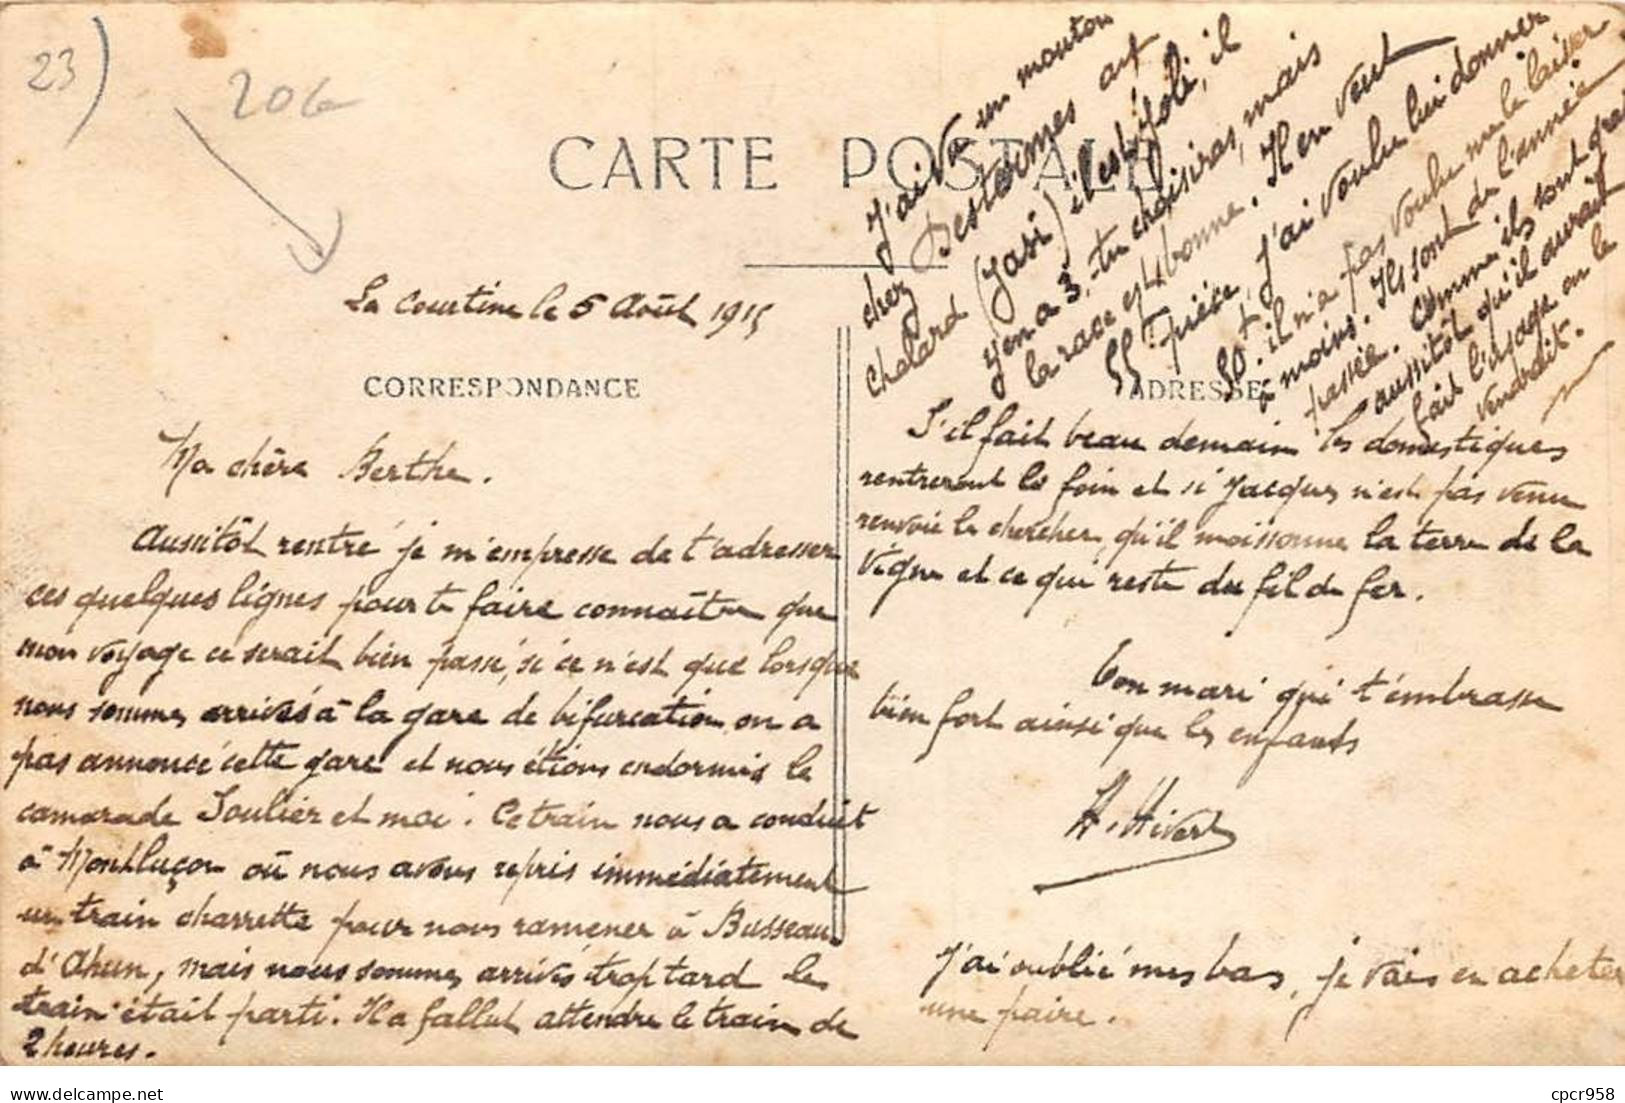 23)
CARTE POSTALE
La Courtine le 5 Août 1915
CORRESPONDANCE
Ma chère Berthe.
Aussitôt rentré je m'empresse de t'adresser
ces quelques lignes pour te faire connaître que
mon voyage ce serait bien passé, si ce n'est que lorsque
nous sommes arrivés à la gare de bifurcation on a
pas annoncé cette gare et nous étions endormis le
camarade Soulier et moi. Ce train nous a conduit
à Montluçon où nous avons repris immédiatement
un train charrette pour nous ramener à Busseau
d'Ahun, mais nous sommes arrivés trop tard le
train était parti. Il a fallut attendre le train de
2 heures.
J'ai vu un mouton
chez Desternes au
Chalard (Jasi) il est joli, il
y en a 3. tu choisiras, mais
la race est bonne. Il en veut
55f pièce, j'ai voulu lui donner
50f. il n'a pas voulu me le laisser
à moins. Ils sont de l'année
passée. comme ils sont gras
aussitôt qu'il aurait
fait l'usage on le
vendrait.
ADRESSE
S'il fait beau demain les domestiques
rentreront le foin et si Jacques n'est pas venu
renvoie le chercher, qu'il moissonne la terre de la
Vigne et ce qui reste du fil de fer.
Ton mari qui t'embrasse
bien fort ainsi que les enfants
H. Hivert
J'ai oublié mes bas, je vais en acheter
une paire.
cpcr958